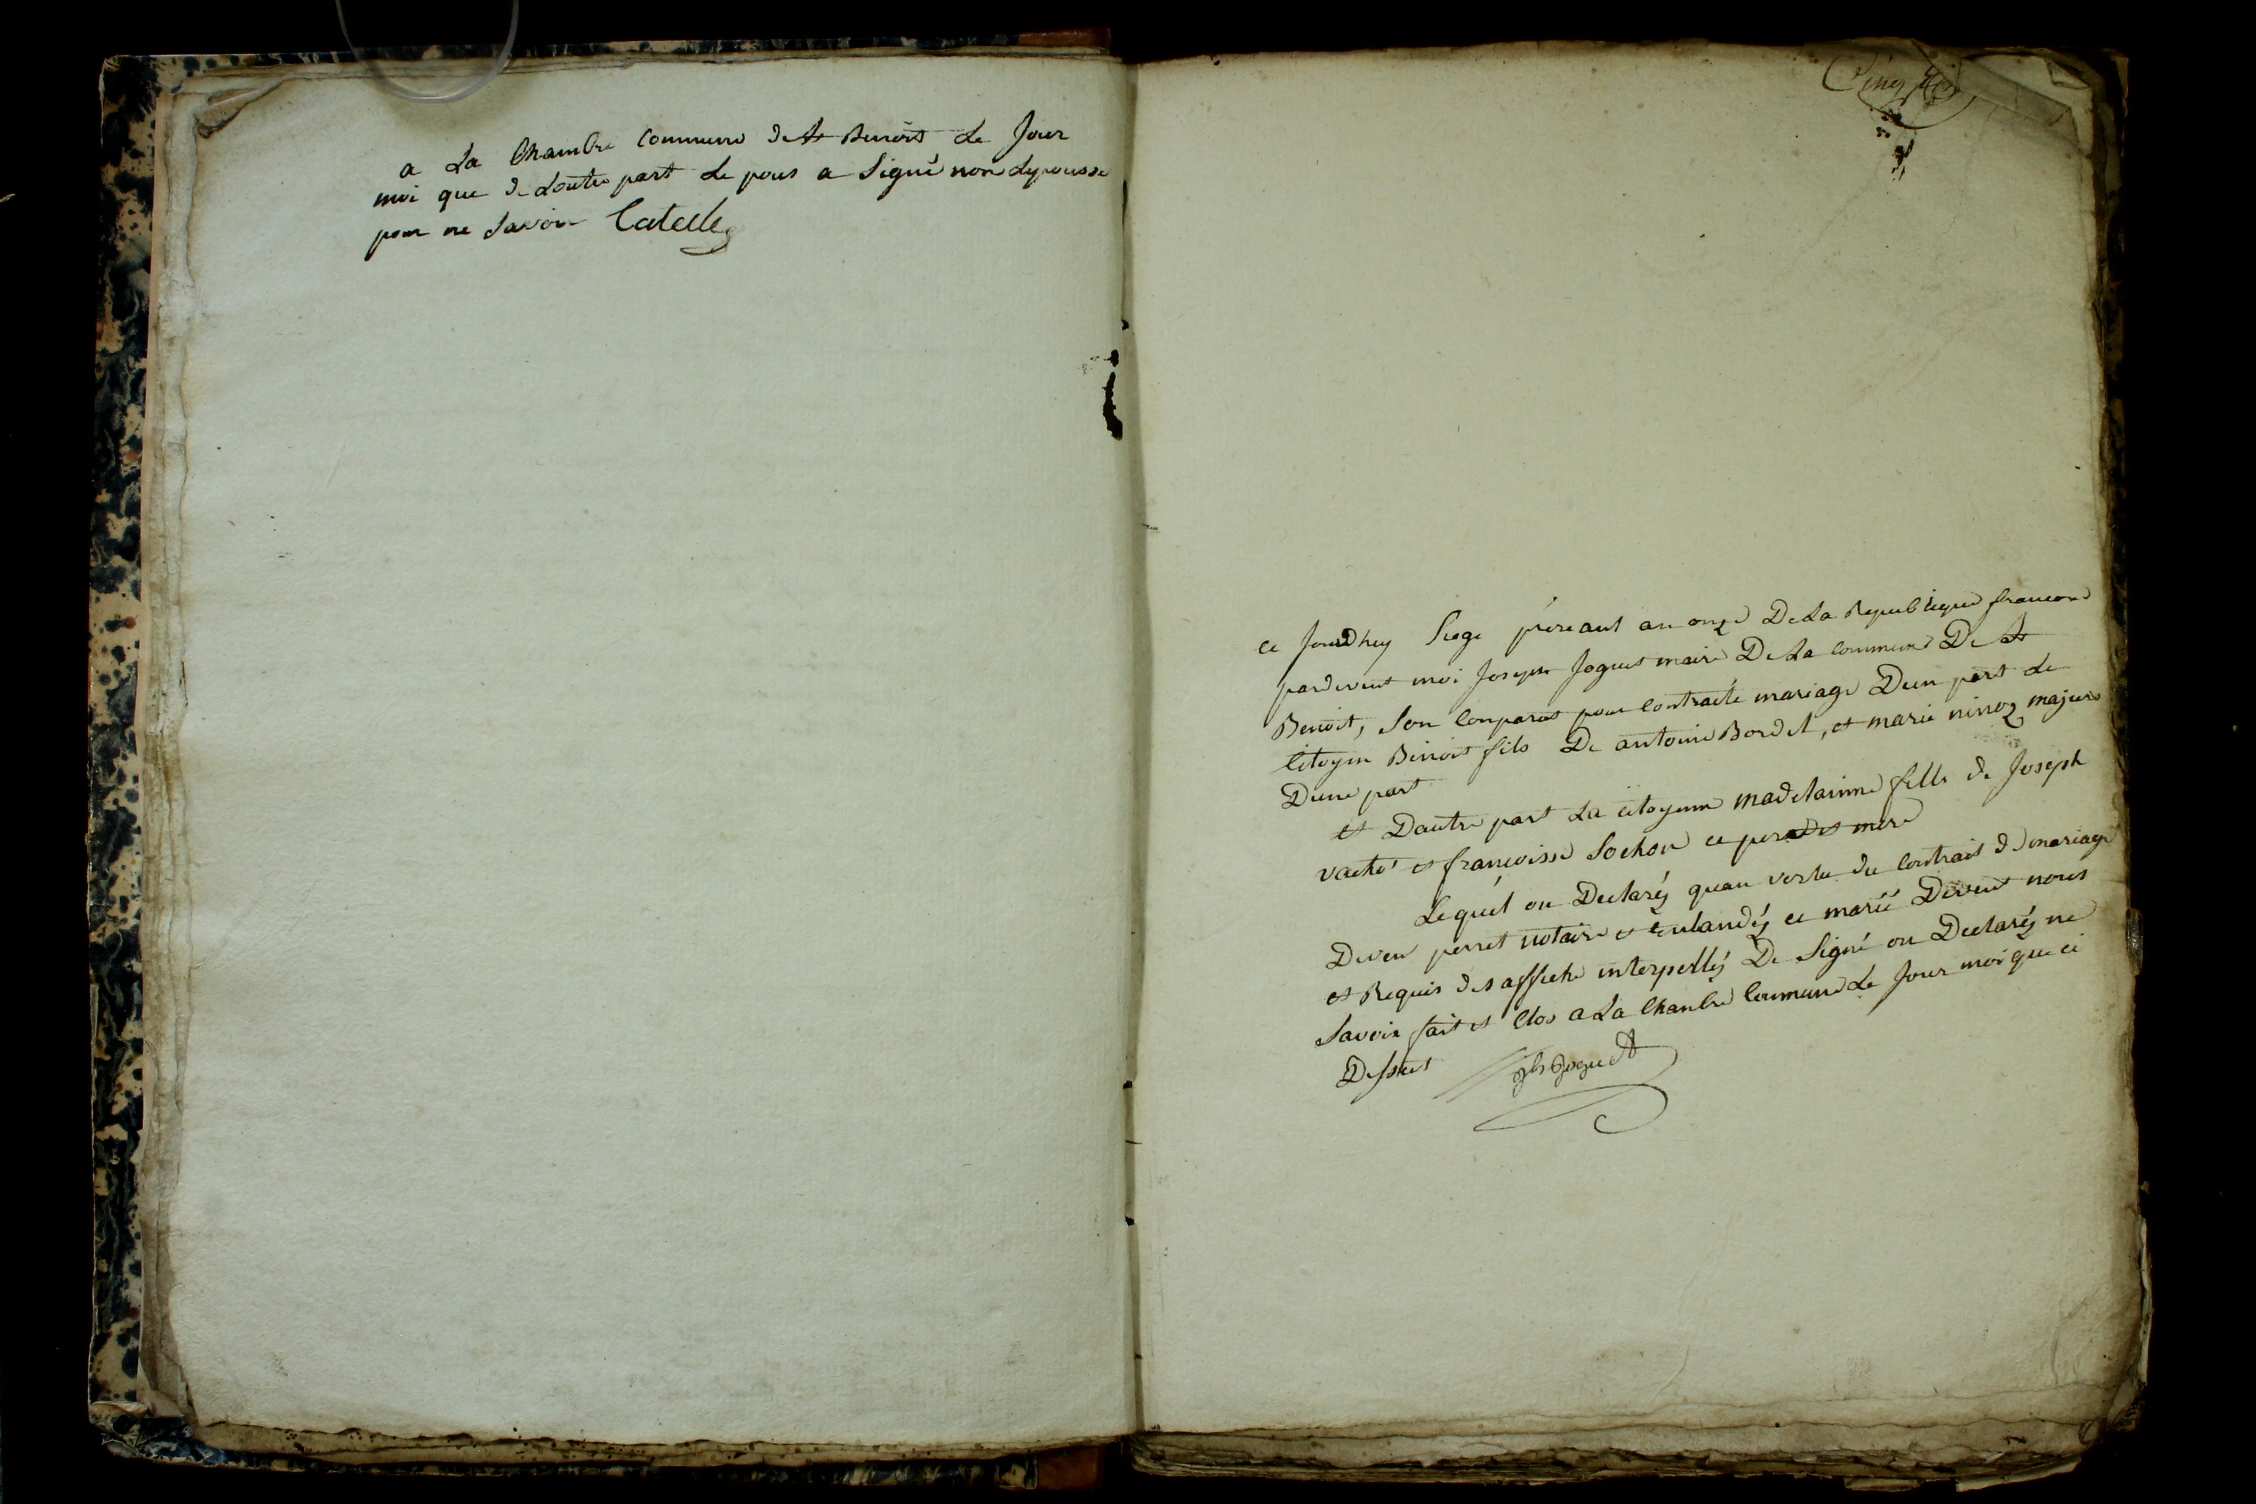 a La Chambre Commune de St Benoit Le Jour
moi que de Loutre part Le pous a Signé non Lepousse
pour ne Savoir Catelle
Cinq
ce Jourdhuy Sege prereaut an onze De La Republique francone
pardevent moi Joseph Joguet maire De La Commune De St
Benoit, Son Conparut pour Contracte mariage Dun part Le
Citoyen Benoit fils De antoine Bordet, et marie ninoz majeur
Dune part
et Dautre part La citoyenne madelainne fille de Joseph
vache et francoisse Sochon ce pere et mere
Lequel on Declarez quan vertu du Contrait de mariage
Deven perret notaire et ce marié Devent nous
et Requis des affiche interpellez De Signé on Declarez ne
Savoir fait et Clos a La Chanbre Commune Le Jour moi que ci
Dessus Jh Joguet